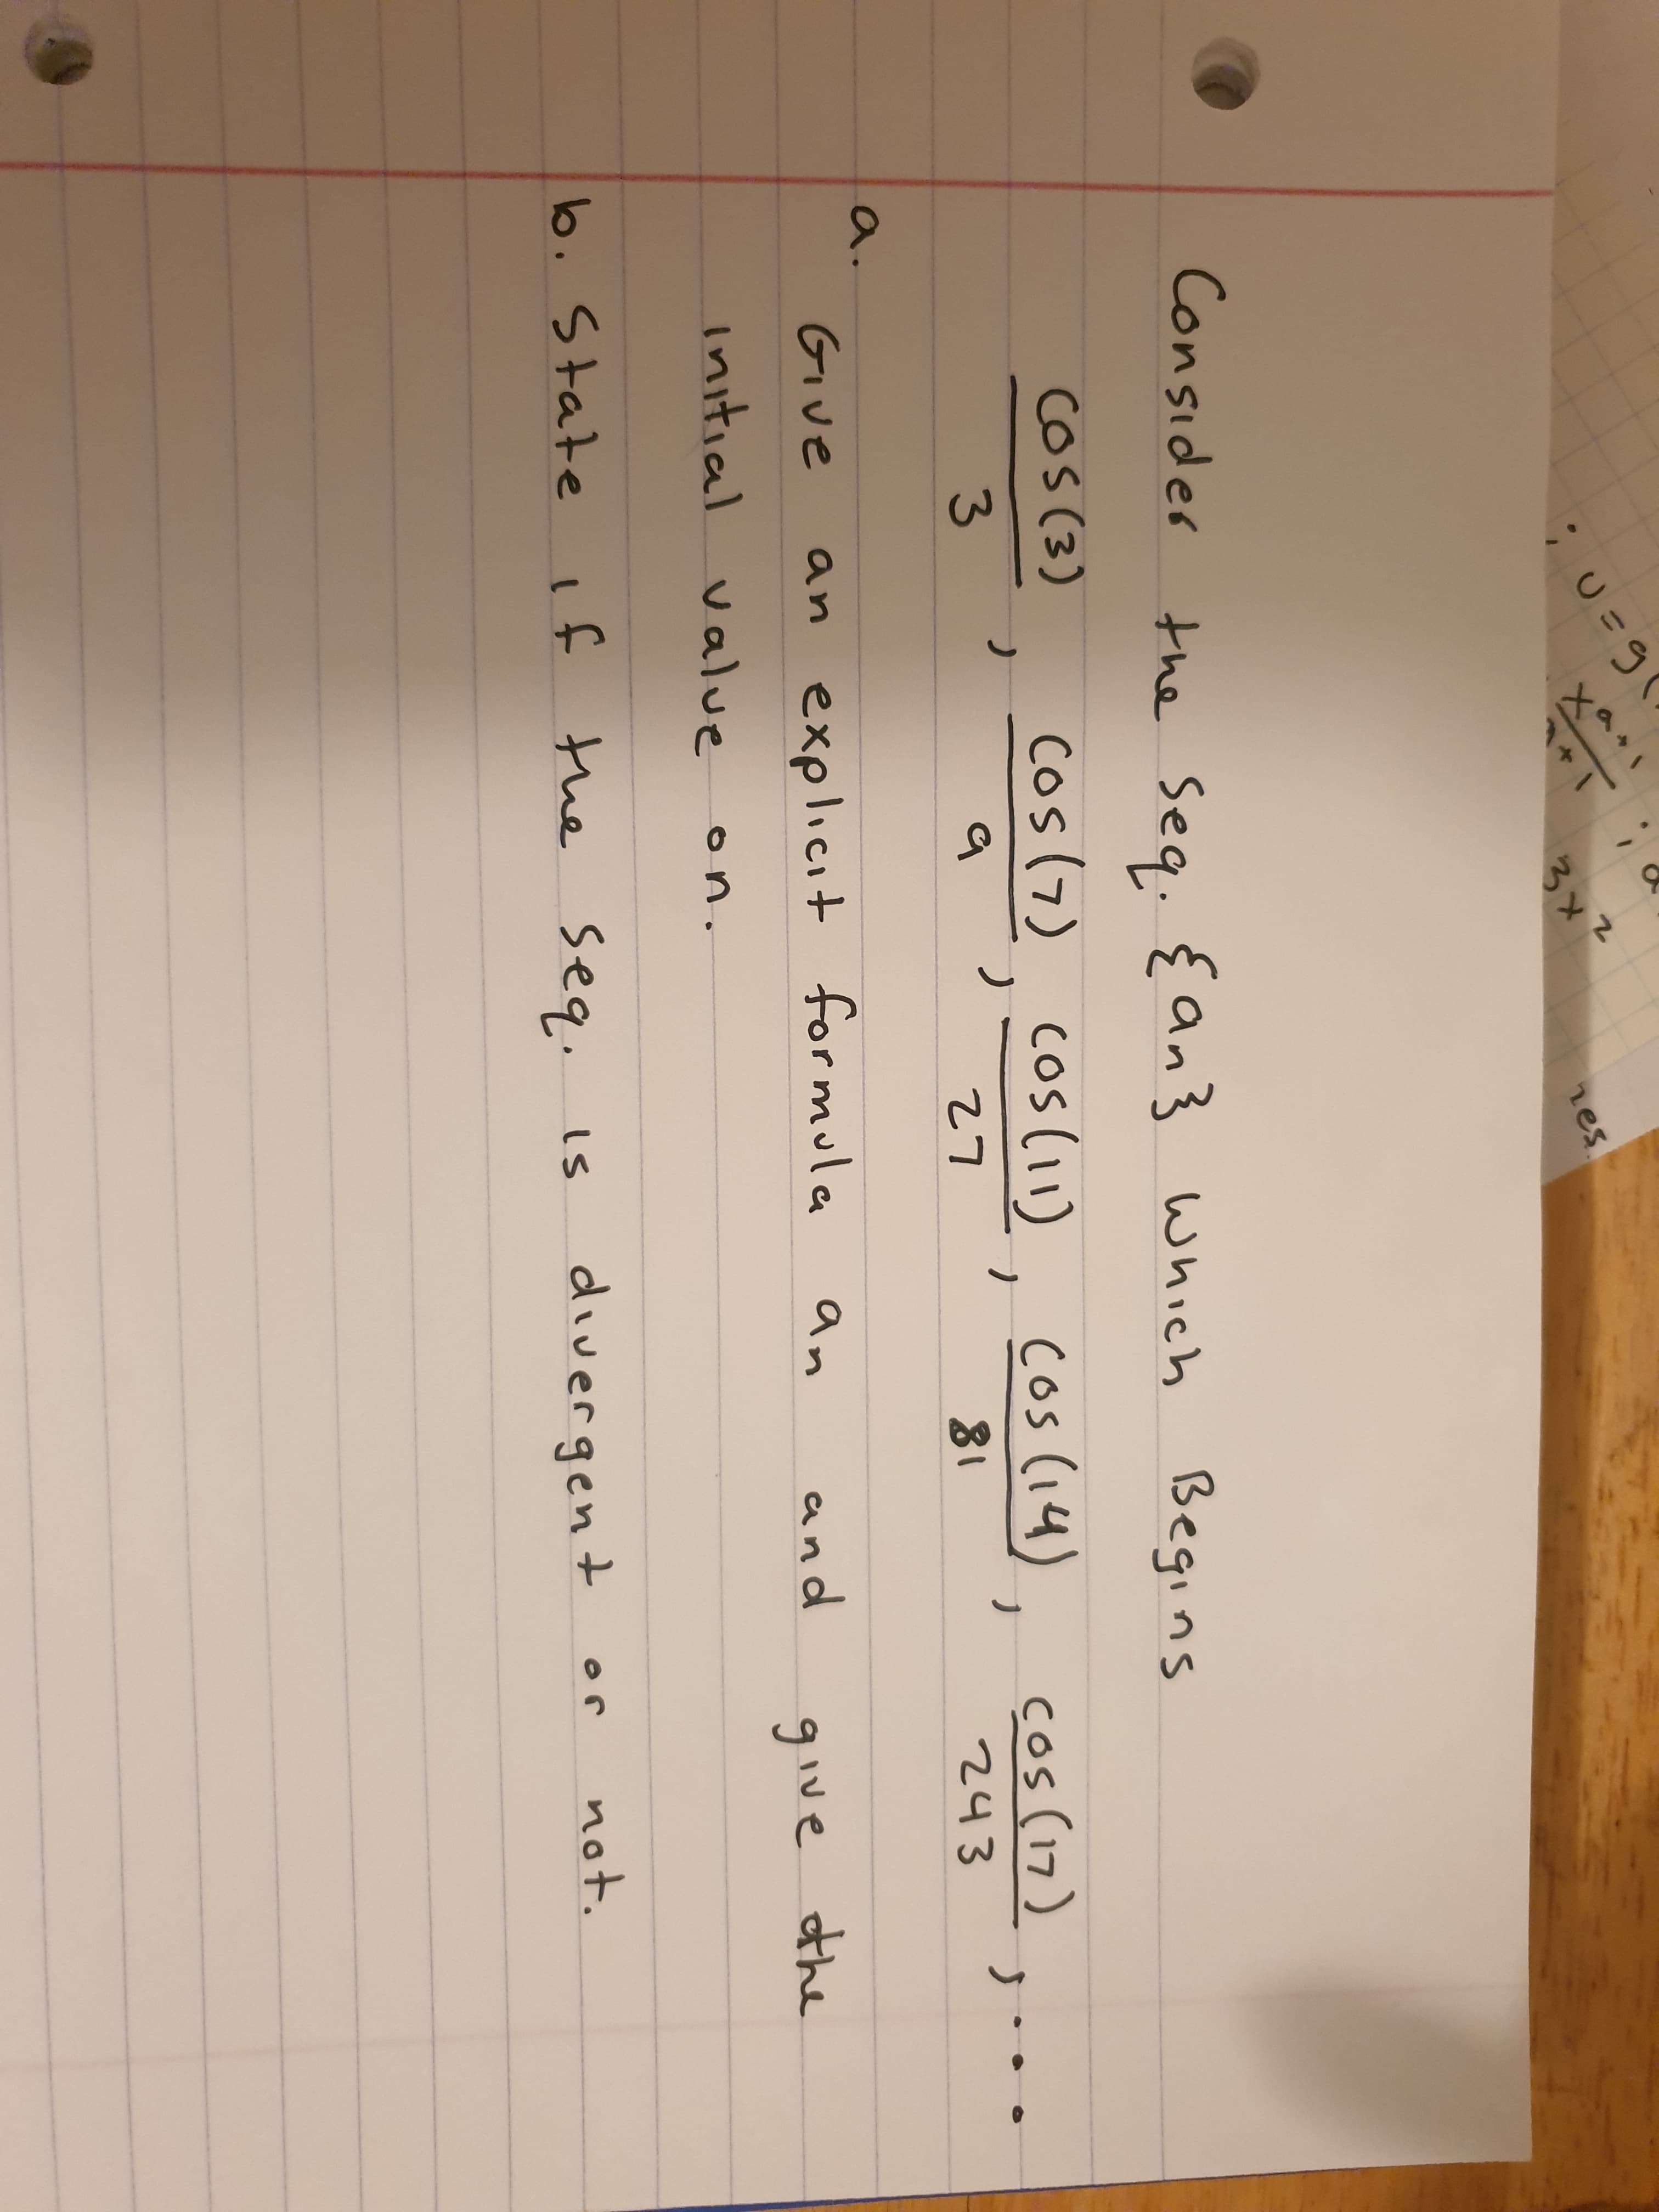 Consider the seq. {an} which Begins
cos(3)/3 , cos(7)/9 , cos(11)/27 , cos(14)/81 , cos(17)/243 , ...
a. Give an explicit formula an and give the
initial value on.
b. State if the seq. is divergent or not.